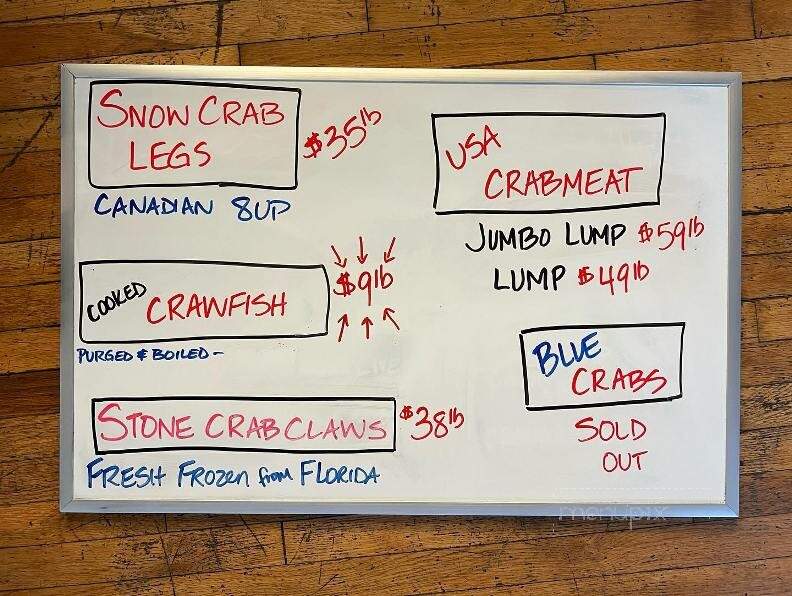 SNOW CRAB
LEGS
$35lb
CANADIAN 8UP
COOKED CRAWFISH
$9lb
PURGED & BOILED -
STONE CRAB CLAWS $38lb
FRESH FROZEN from FLORIDA
USA
CRABMEAT
JUMBO LUMP $59lb
LUMP $49lb
BLUE
CRABS
SOLD
OUT
menupix